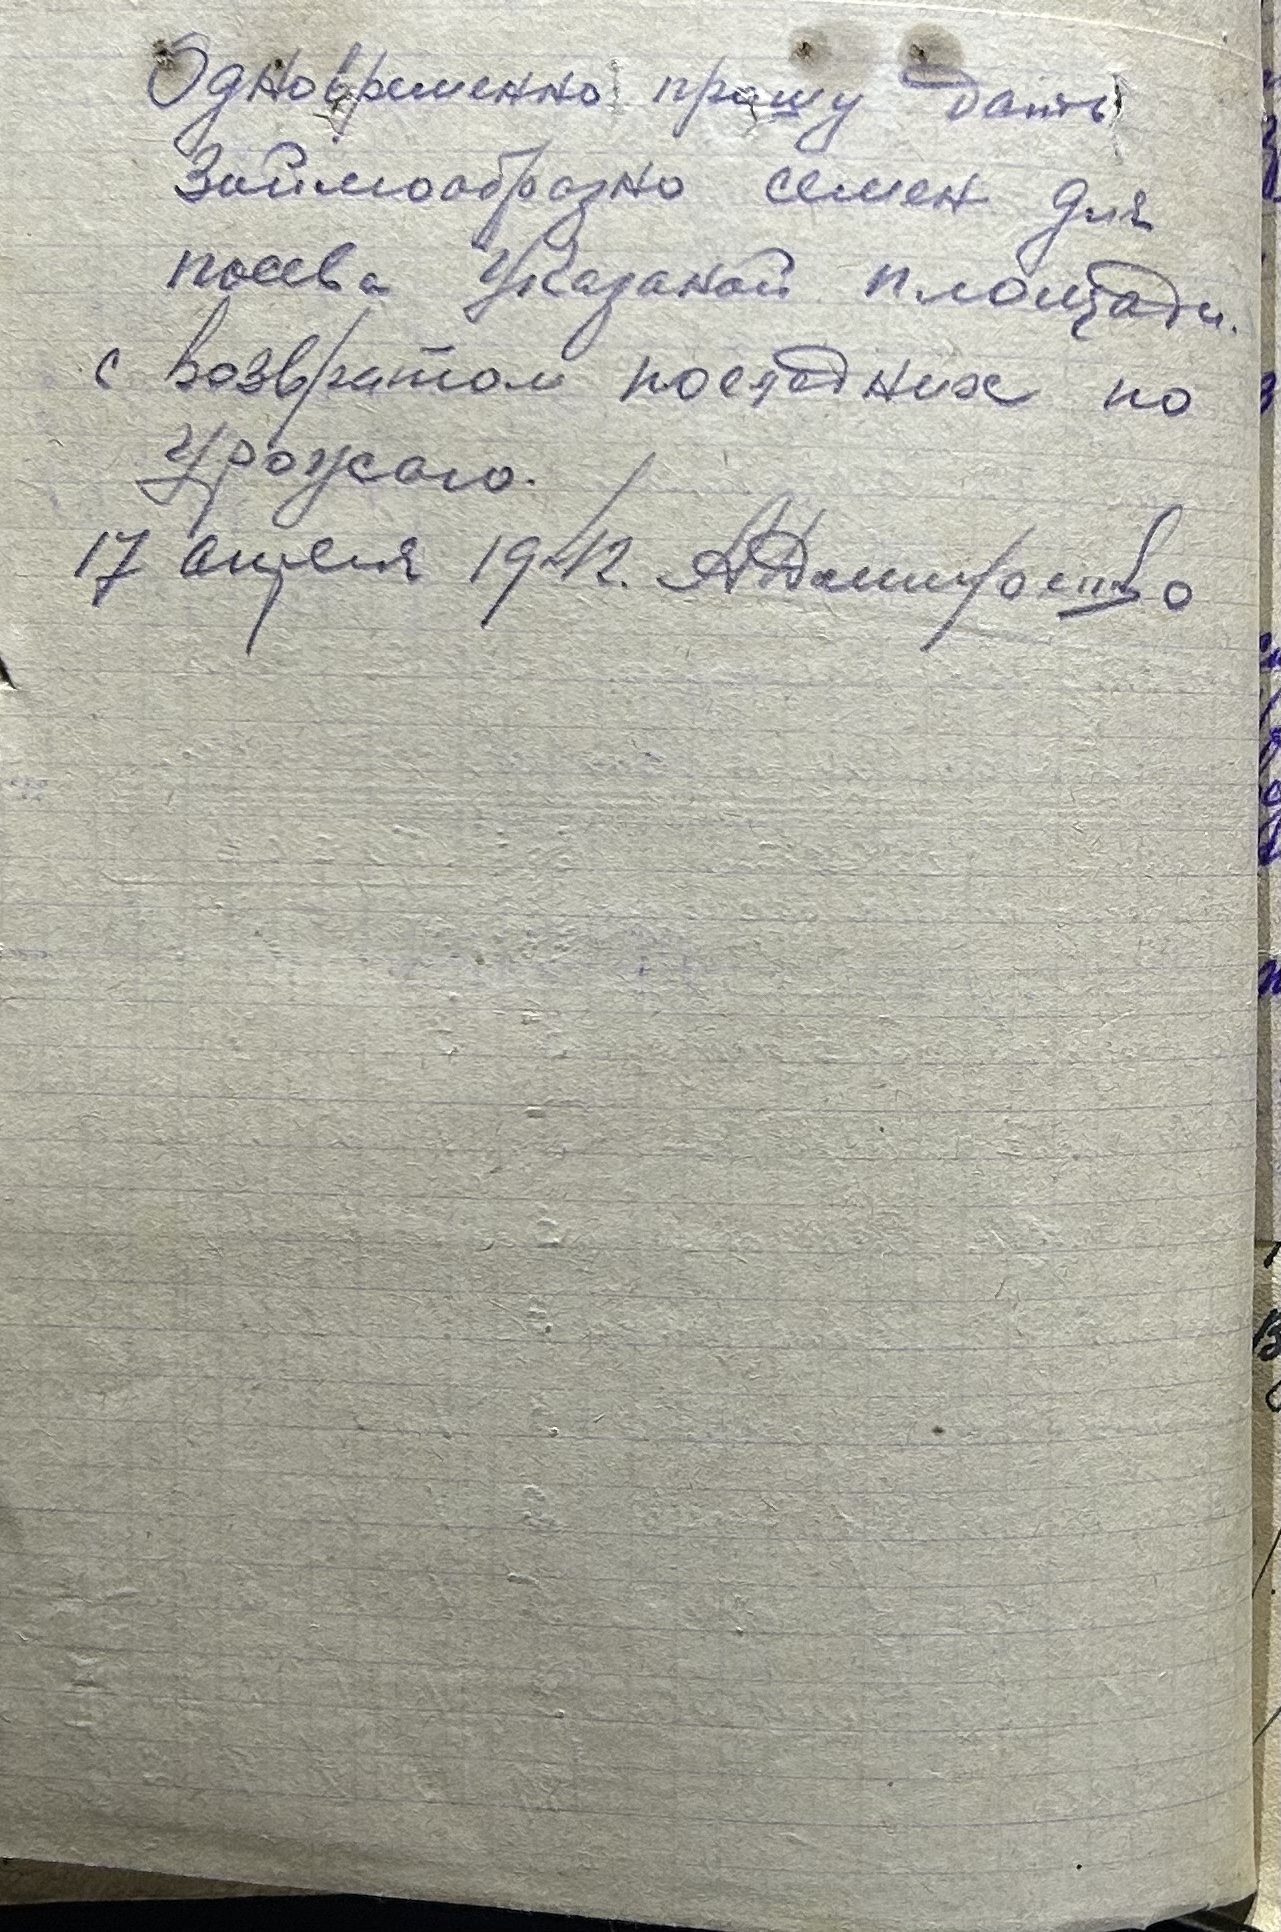 Одновременно прошу дать
Займообразно семен для
посева Указаной площади.
с возвратом последних по
Урожаю.
17 апреля 1942.